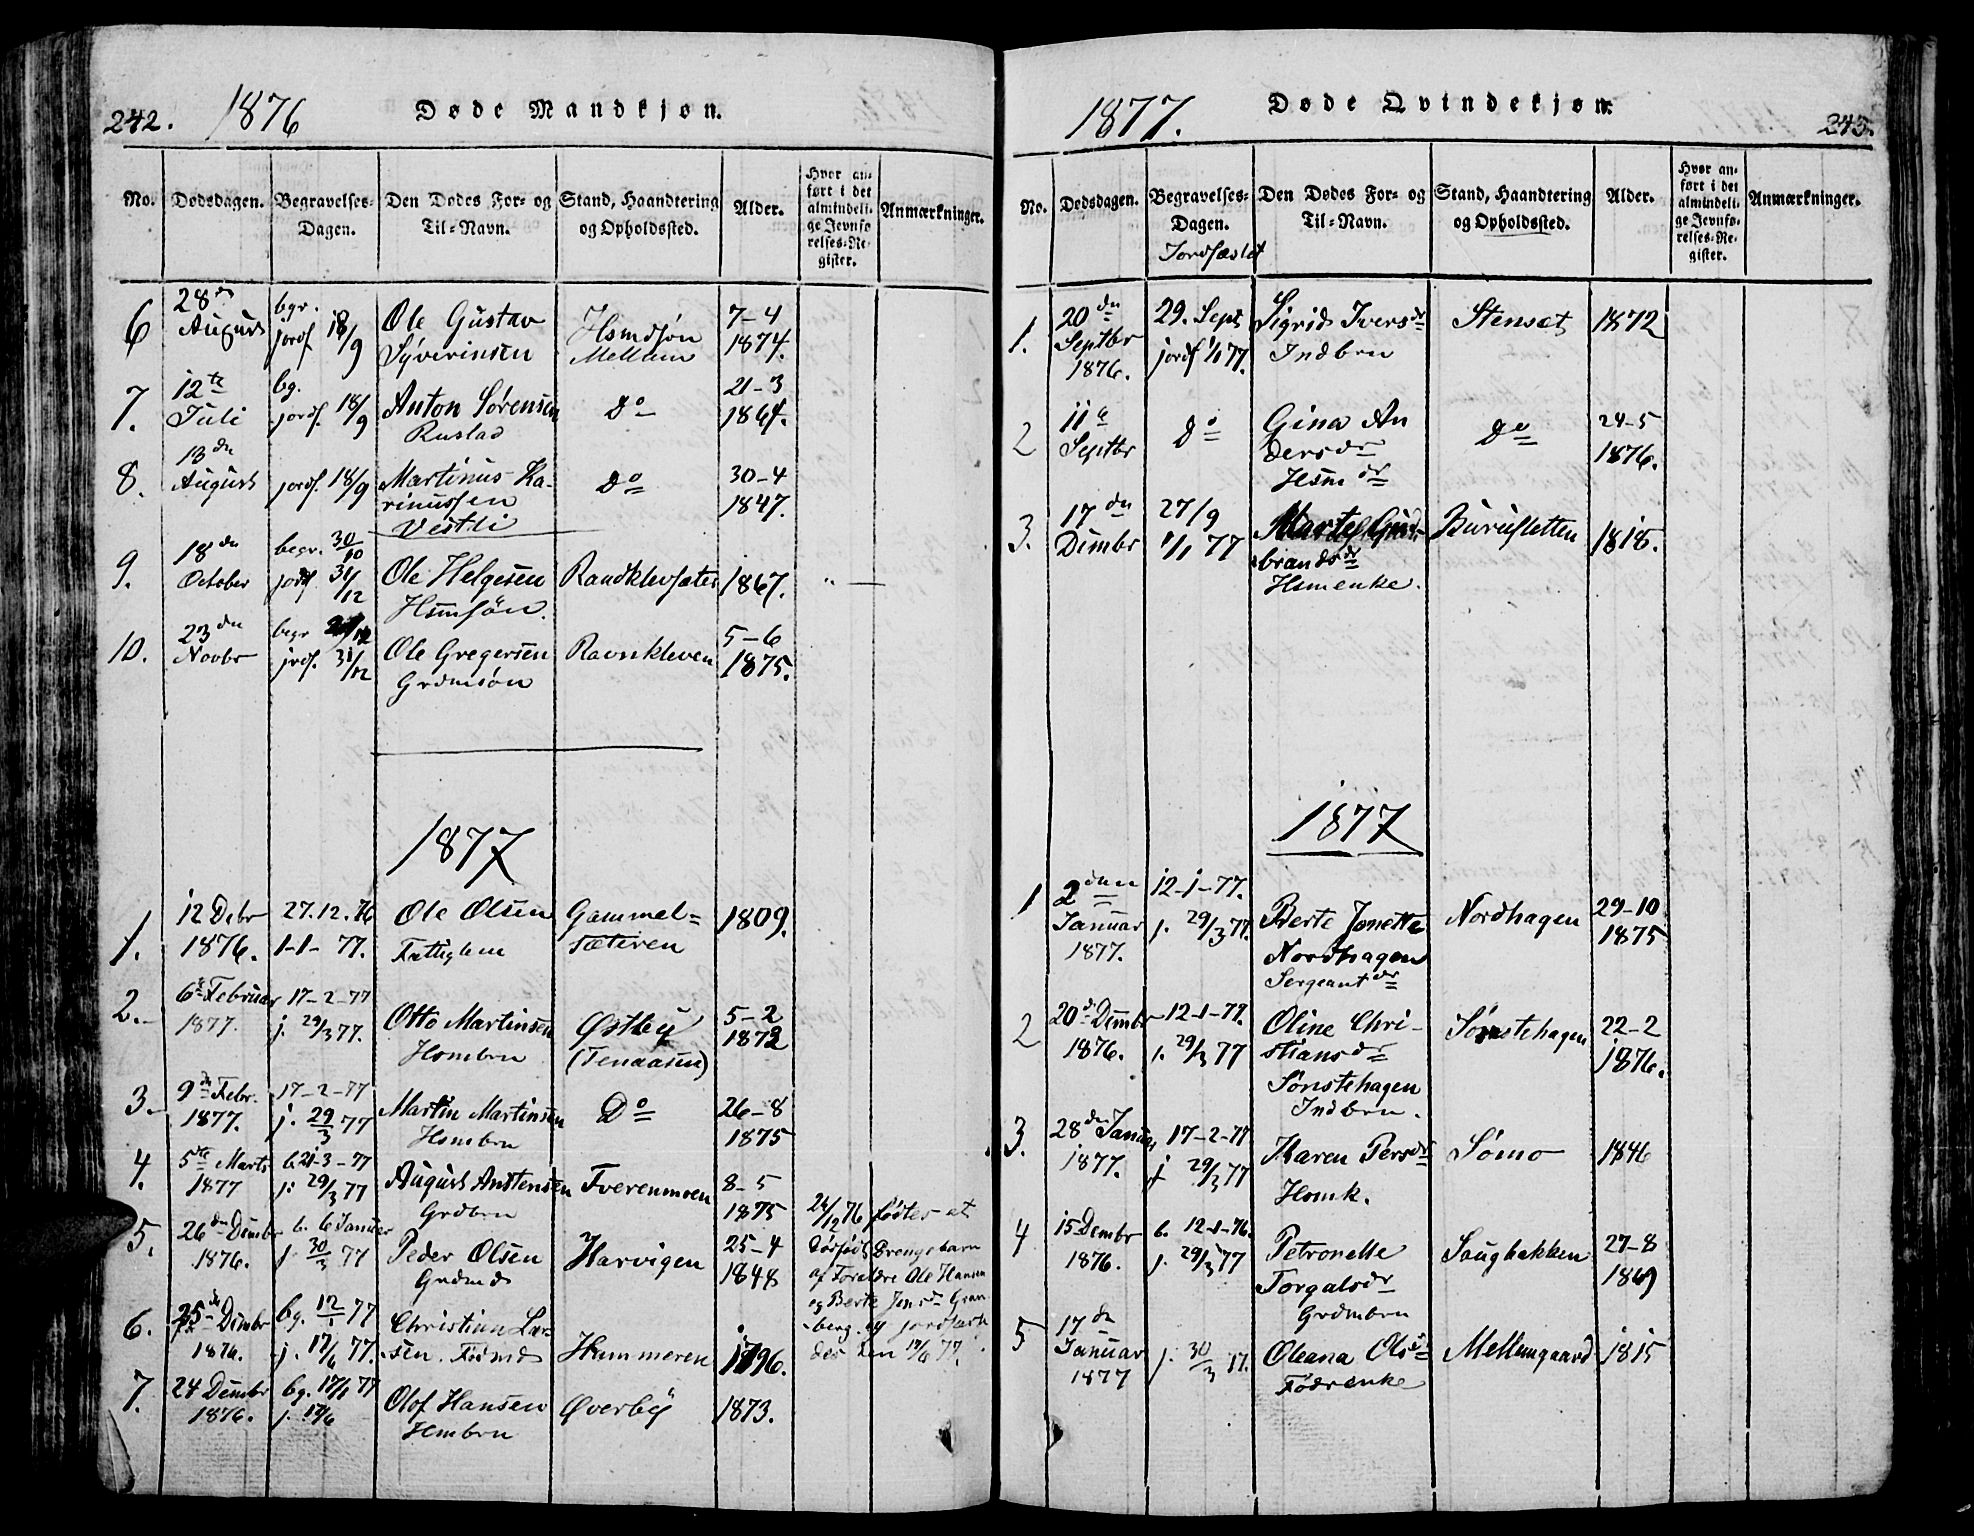 242. 1876 Døde Mandkjøn.
No. Dødsdagen. Begravelses-Dagen. Den Dødes For- og Til-Navn. Stand, Haandtering og Opholdssted. Alder. Hvor anført i det almindelige Jevnførelses-Register. Anmærkninger.
6 28de August bgr. jordf 18/9 Ole Gustav Syverinsen Hsmdsøn Mellum 7-4 1874.
7. 12te Juli bg. jordf. 18/9 Anton Sørensen Rustad Do 21-3 1864.
8. 13de August jordf. 18/9 Martinus Karinussen Vestli Do 30-4 1847.
9. 18de October begr. 30/10 jordf 31/12 Ole Helgesen Hsmsøn. Randklevsæter 1867. "
10. 23de Novbr begr jrdf. 31/12 Ole Gregersen Grdmsøn Ravnkleven 5-6 1875.
1877
1. 12 Debr 1876. 27.12.76 1-1-77. Ole Olsen Fattiglem Gammelsæteren 1809.
2. 6te Februar 1877. 17-2-77 j. 29/3 77. Otto Martinsen Hsmbrn Østby (Tenaasen) 5-2 1872
3. 9de Febr. 1877. 17-2-77 j. 29/3 77 Martin Martinsen Hsmbrn Do 26-8 1875
4. 5te Marts 1877 b. 21-3-77 j. 29/3 77 August Anstensen Grdbrn Tverenmoen 8-5 1875
5. 26de Dembr 1876. b. 6 Januar j. 30/3 77 Peder Olsen Grdmd Harvigen 25-4 1848
6. 25de Dembr 1876. bg. 12/1 77 j. 17/6 77. Christian Larsen. Fødmd Hammeren 1796.
7. 24 Dembr 1876. bg. 12/1 77 j. 17/6 Olof Hansen Hmbrn Øverby 1873.
24/12 76 fødtes et
dødfødt Drengebarn
af Forældre Ole Hansen
og Berte Jensdr Gran-
berg. og jordfæste-
des den 17/6 77.
1877. Døde Qvindekjøn. 243.
No. Dødsdagen. Begravelses-Dagen. Jordfæstet Den Dødes For- og Til-Navn. Stand, Haandtering og Opholdssted. Alder. Hvor anført i det almindelige Jevnførelses-Register. Anmærkninger.
1. 20de Septbr 1876. 29. Sept jordf 1/1 77. Sigrid Iversdr Indbrn Stenset 1872
2 11te Septbr Do Gina Andersdr Hsmdr Do 24-5 1876.
3. 17de Dembr 27/9 1/1 77 Marte Gudbrandsdr Hsmenke. Burusletten 1818.
1877
1 2den Januar 1877. 12-1-77. j. 29/3 77. Berte Jonette Nordhagen Sergeantdr Nordhagen 29-10 1875
2 20de Dembr 1876. 12-1-77. j. 29/3 77 Oline Christiansdr Sønstehagen Indbrn. Sønstehagen 22-2 1876.
3. 28de Januar 1877. 17-2-77 j. 29/3 77 Karen Persdr Hsmk. Sømo 1846
4 15 Dembr 1876. b. 12-1-76. j. 29/3 77 Petronelle Torgalsdr Grdmbrn Saugbakken 27-8 1869
5 17de Januar 1877 j. 30/3 77. Oleana Olsdr Fødrenke Mellemgaard 1815